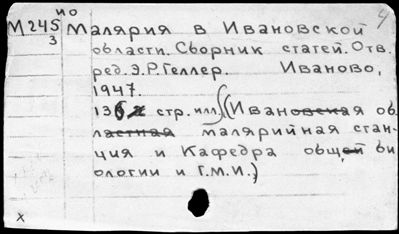 ИО 4
М245 Малярия в Ивановской
3 области. Сборник статей. Отв.
ред. Э.Р. Геллер. Иваново,
1947.
136 стр. илл. (Ивановская об
ластная малярийная стан-
ция и Кафедра общей би
ологии и Г.М.И.)
x